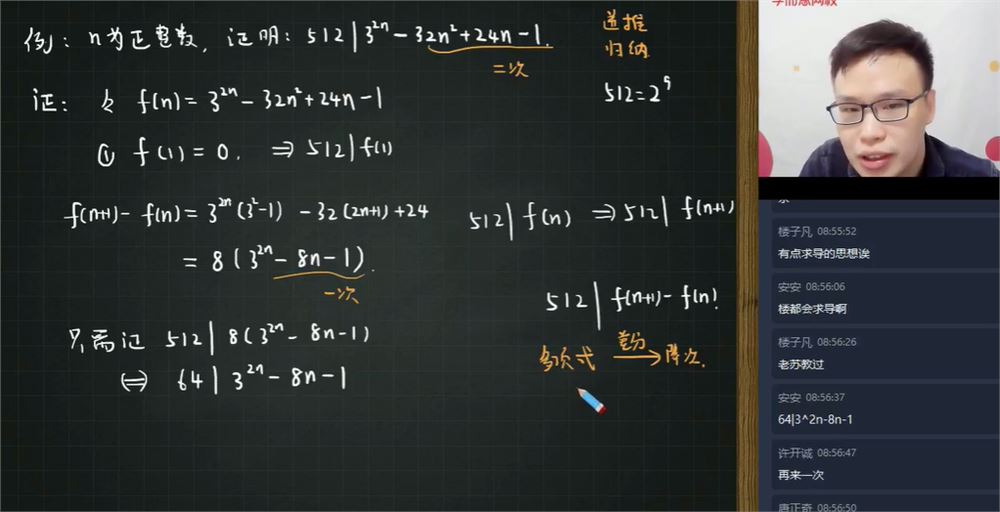 例：n为正整数，证明：512|3^{2n}-32n²+24n-1.
二次
递推
归纳
512=2⁹
证：令 f(n)=3^{2n}-32n²+24n-1
① f(1)=0. ⇒ 512|f(1)
f(n+1)-f(n)=3^{2n}(3²-1)-32(2n+1)+24
=8(3^{2n}-8n-1).
一次
512|f(n) ⇒ 512|f(n+1)
512|f(n+1)-f(n)!
只需证 512|8(3^{2n}-8n-1)
⇔ 64|3^{2n}-8n-1
多项式 差分→ 降次.
学而思网校
楼子凡 08:55:52
有点求导的思想诶
安安 08:56:06
楼都会求导啊
楼子凡 08:56:26
老苏教过
安安 08:56:37
64|3^2n-8n-1
许开诚 08:56:47
再来一次
唐正奇 08:56:50